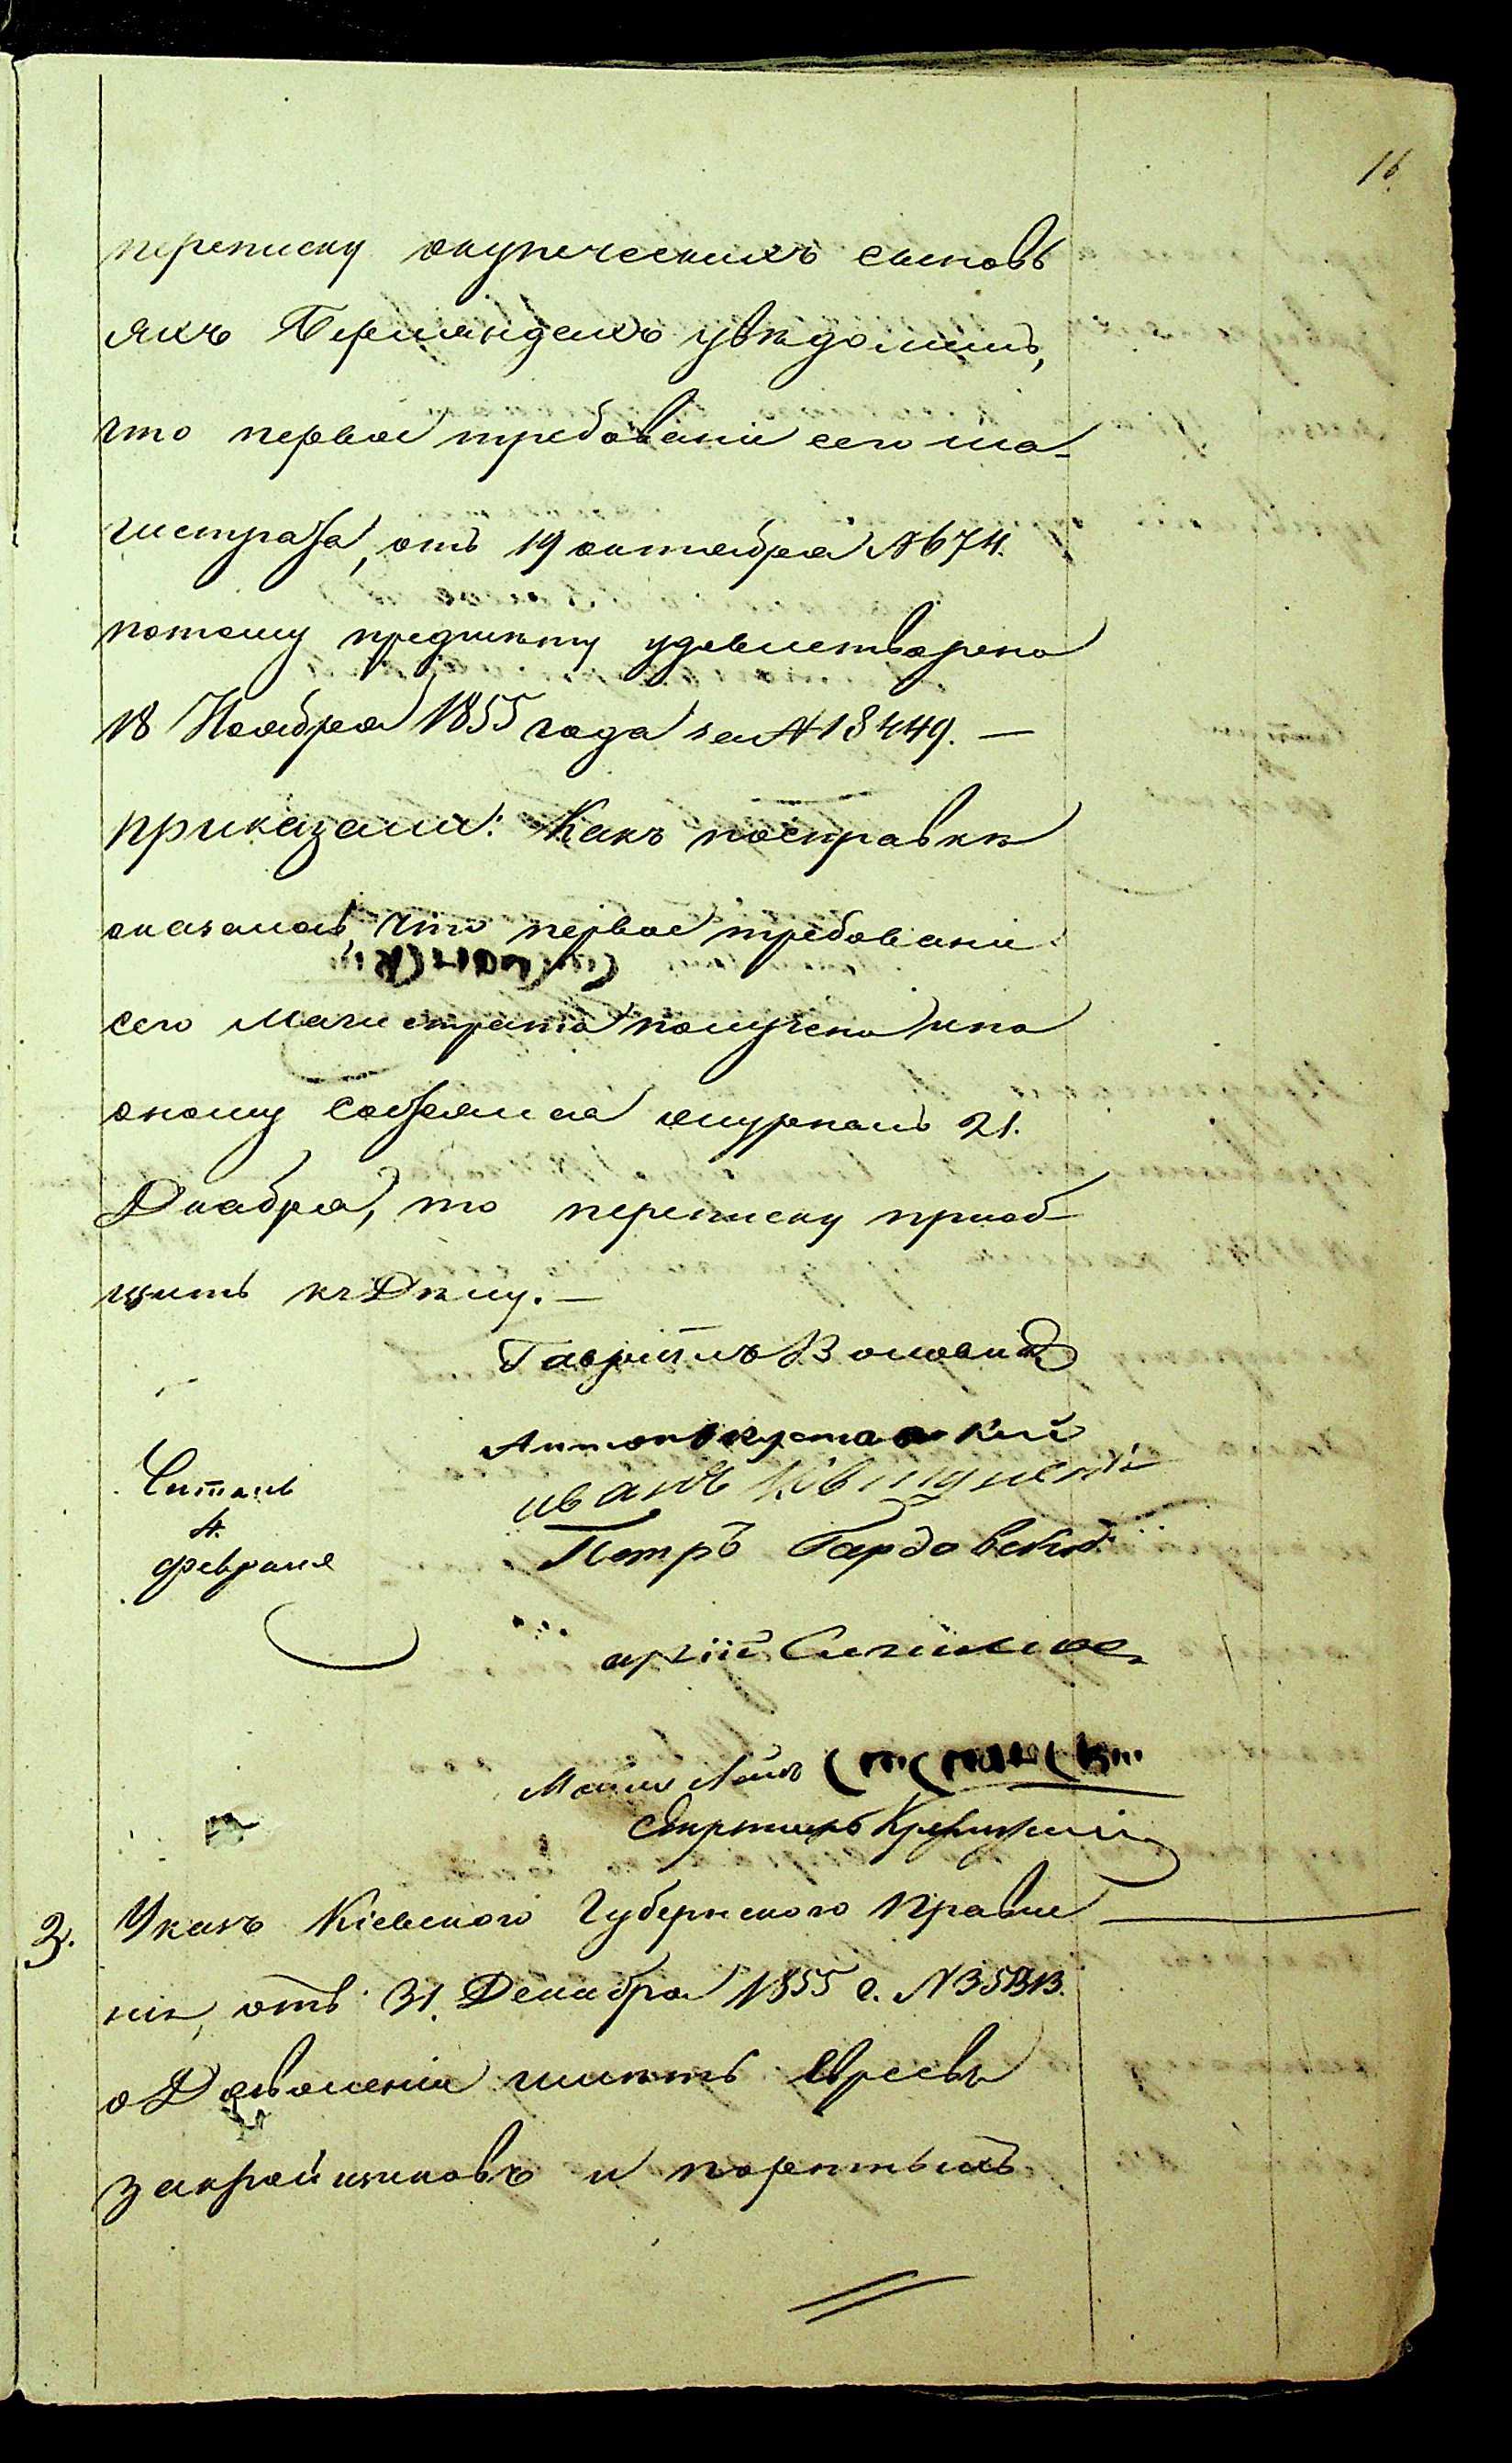 16.
переписку окупеческихъ сыновь
яхъ увѣдомить,
что первое требованіе сего ма-
гистрата, отъ 19 октября № 674.
потому предмету удовлетворено
18 Ноября 1855 года за № 18449. —
приказали: Какъ посправкѣ
оказалось, что первое требованіе
сего Магистрата получено ипо
оному состоялся журналъ 21.
Декабря, то переписку приоб-
щить къ Дѣлу. —
Гавріилъ
Антонъ
иванъ
Петръ
Читалъ
4.
февраля
3. Указъ Кіевскаго Губернскаго Правле
нія, отъ 31. Декабря 1855 г. №
о Дозволеніи имѣть Евреевъ
закройщиковъ и портныхъ